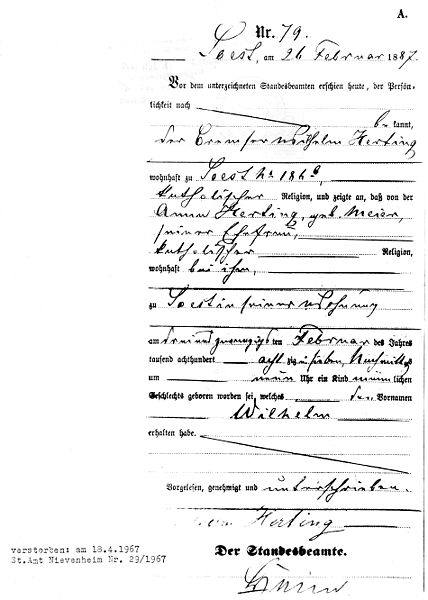 A.
Nr. 79.
Soest, am 26 Februar 1887.
Vor dem unterzeichneten Standesbeamten erschien heute, der Persön-
lichkeit nach
be kannt,
der Bremser Wilhelm Herting
wohnhaft zu Soest No 186
katholischer Religion, und zeigte an, daß von der
Anna Herting, geb. Meier,
seiner Ehefrau,
katholischer Religion,
wohnhaft bei ihm,
zu Soest in seiner Wohnung
am dreiundzwanzigsten Februar des Jahres
tausend achthundert achtzig und sieben, Nachmittags
um neun Uhr ein Kind männlichen
Geschlechts geboren worden sei, welches den Vornamen
Wilhelm
erhalten habe.
Vorgelesen, genehmigt und unterschrieben.
Herting
Der Standesbeamte.
verstorben: am 18.4.1967
St.Amt Nievenheim Nr. 29/1967